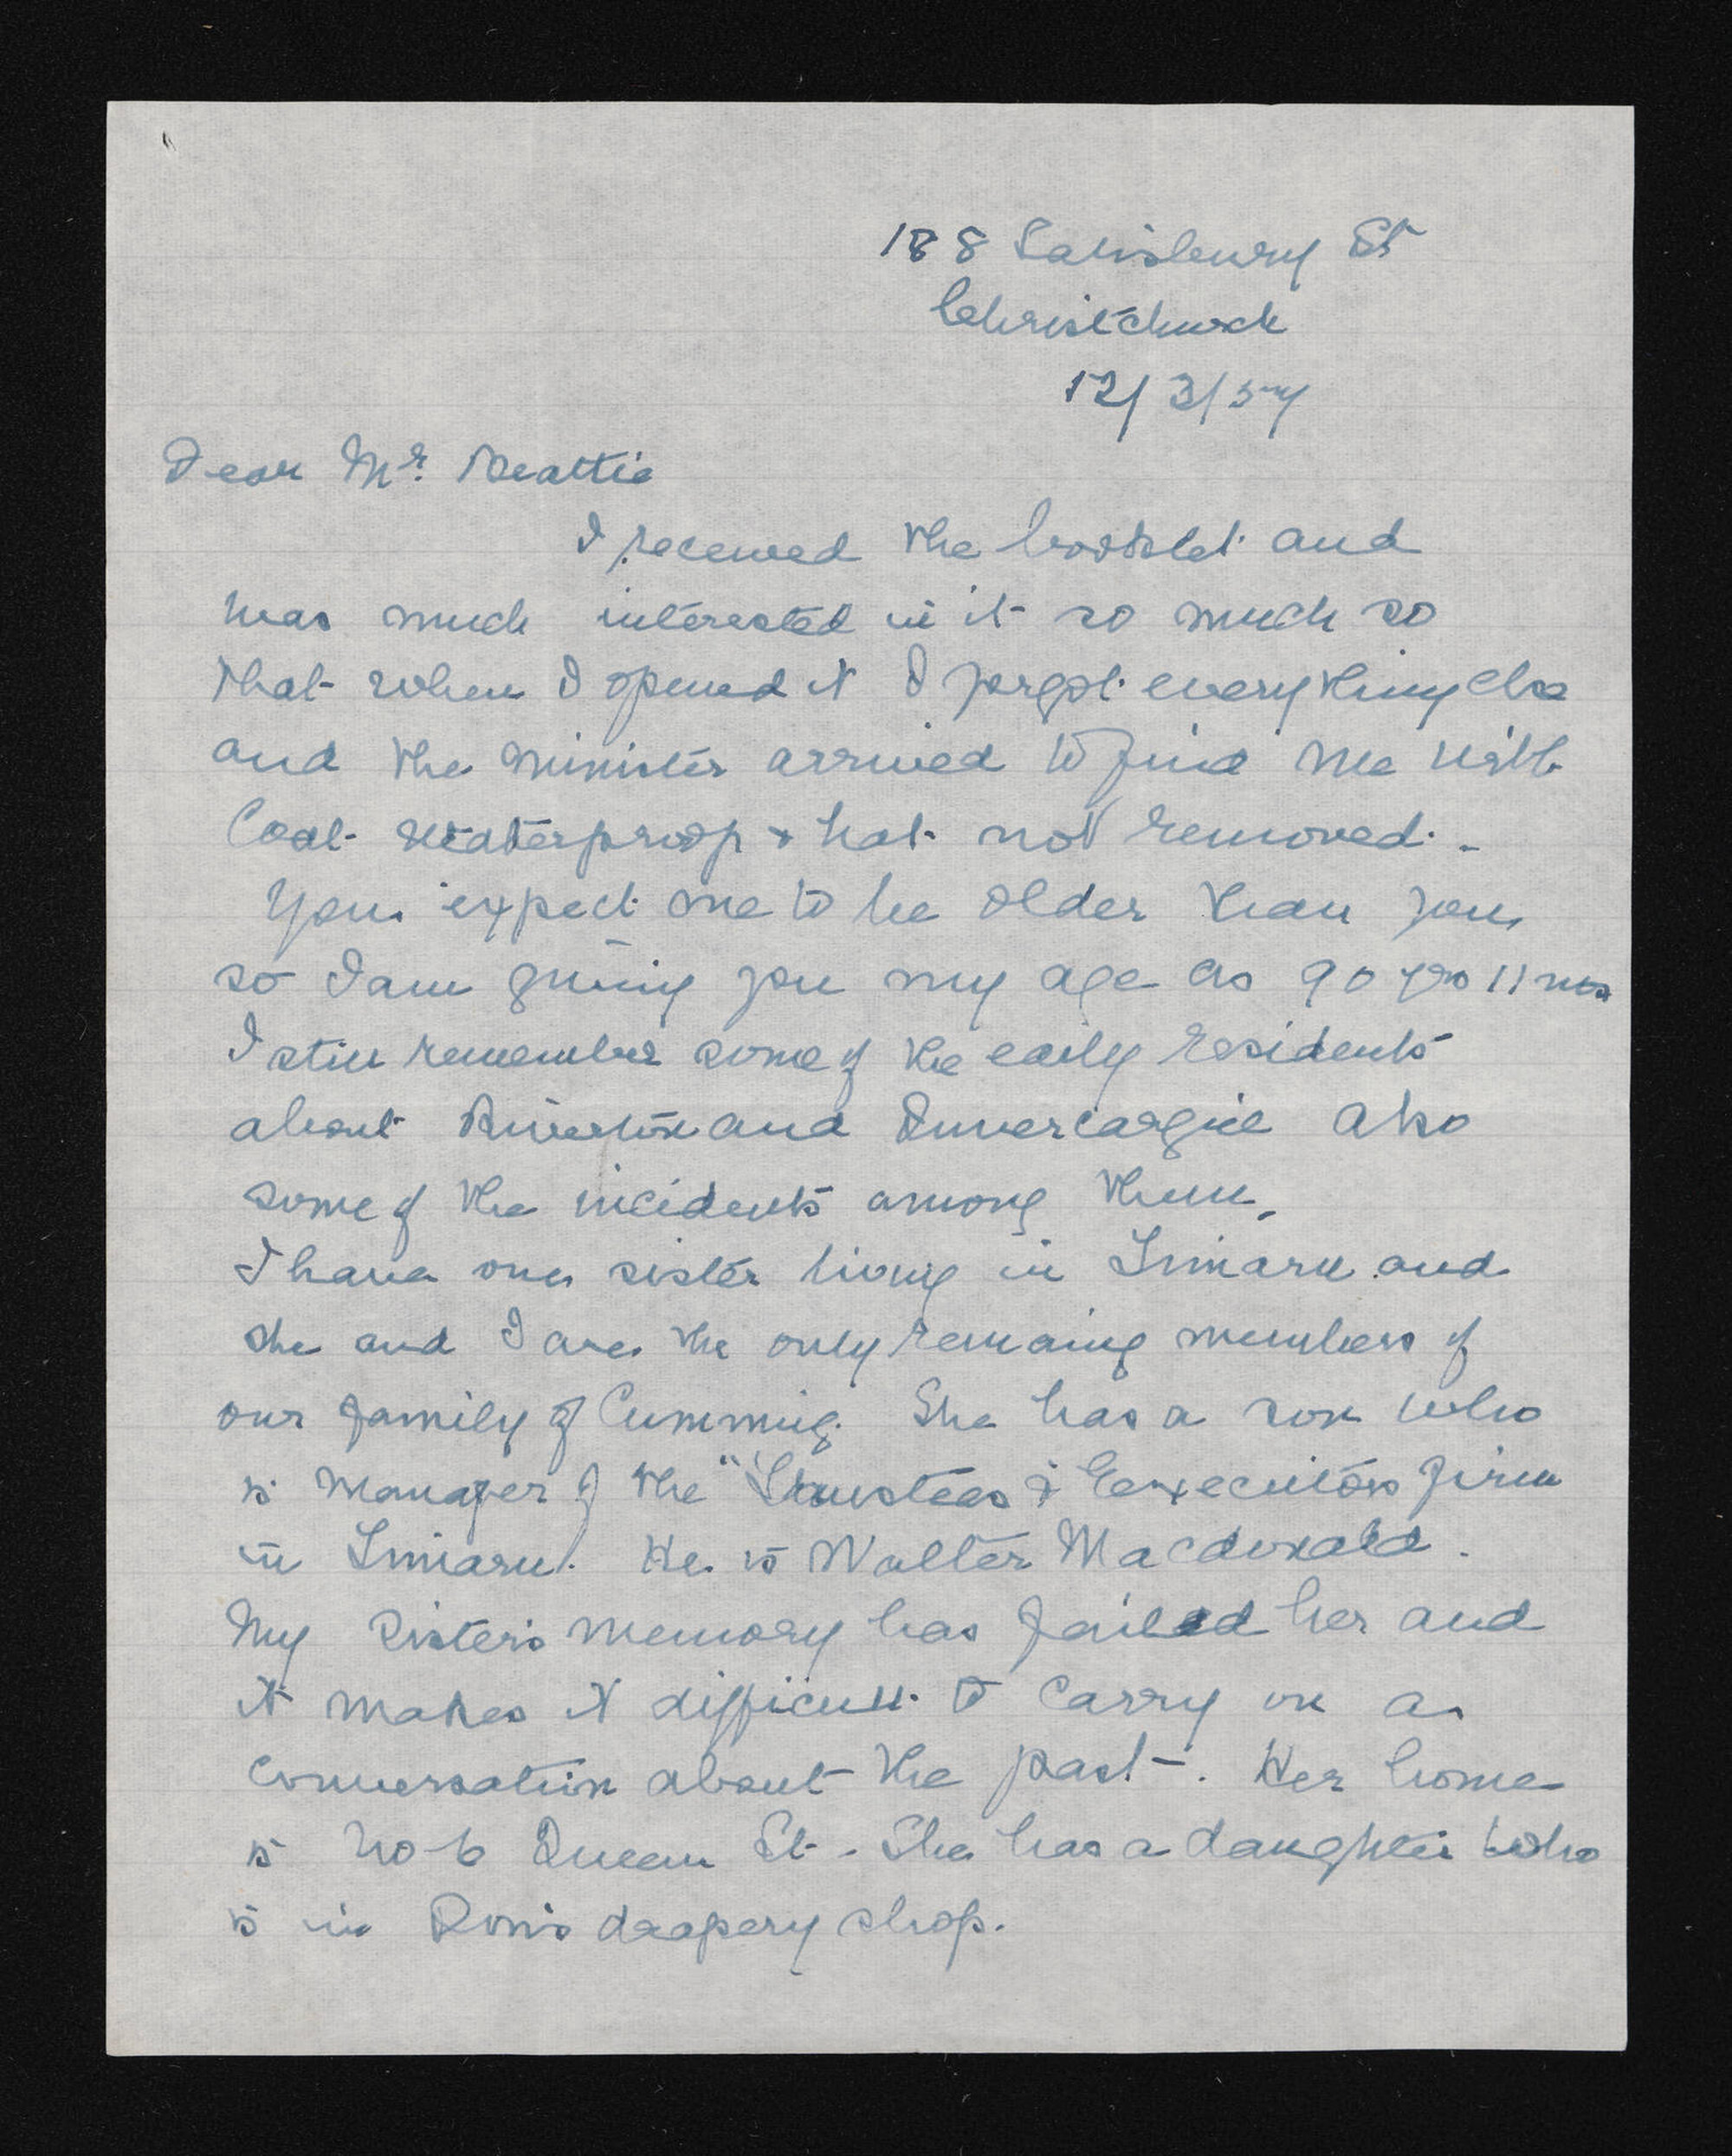 188 Salisbury St
Christchurch
12/3/57
Dear Mr. Beattie
I received the booklet and
was much interested in it so much so
that when I opened it I forgot everything else
and the minister arrived to find me with
Coat waterproof & hat not removed. -
You expect me to be older than you,
so I am giving you my age as 90 yrs 11 mos
I still remember some of the early residents
about Riverton and Invercargill also
some of the incidents among them.
I have one sister living in Timaru and
she and I are the only remaing members of
our family of Cumming. She has a son who
is manager of the "Trustees & Executors firm
in Timaru. He is Walter Macdonald.
My sister's memory has failed her and
it makes it difficult to carry on a
conversation about the past. Her home
is No 6 Queen St. She has a daughter who
is in drapery shop.